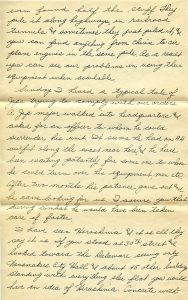 even found half the stuff. They
pile it along highways in railroad
tunnels & sometimes they just piled it, &
you can find anything from chairs to air
plane engines in the same pile. As a result
you can see our problems in using their
equipment when available.
Sunday I heard a typical tale of
Japs trying to comply with our orders.
A Jap major walked into headquarters &
asked for an officer to whom he could
surrender his sword. It seems he had an AA
outfit along the coast near here & he had
been waiting patiently for some one to whom
he could turn over his equipment men etc.
After two months his patience gave out &
he came looking for us. I assure you that
during combat he would have been taken
care of faster.
I have seen Hiroshima & it is all they
say it is. If you stood at 30th street &
looked towards the Delaware seeing only
Wanamakers City Hall & about 15 other buildings
standing with anything else flat you would
have an idea of Hiroshima. Concrete with